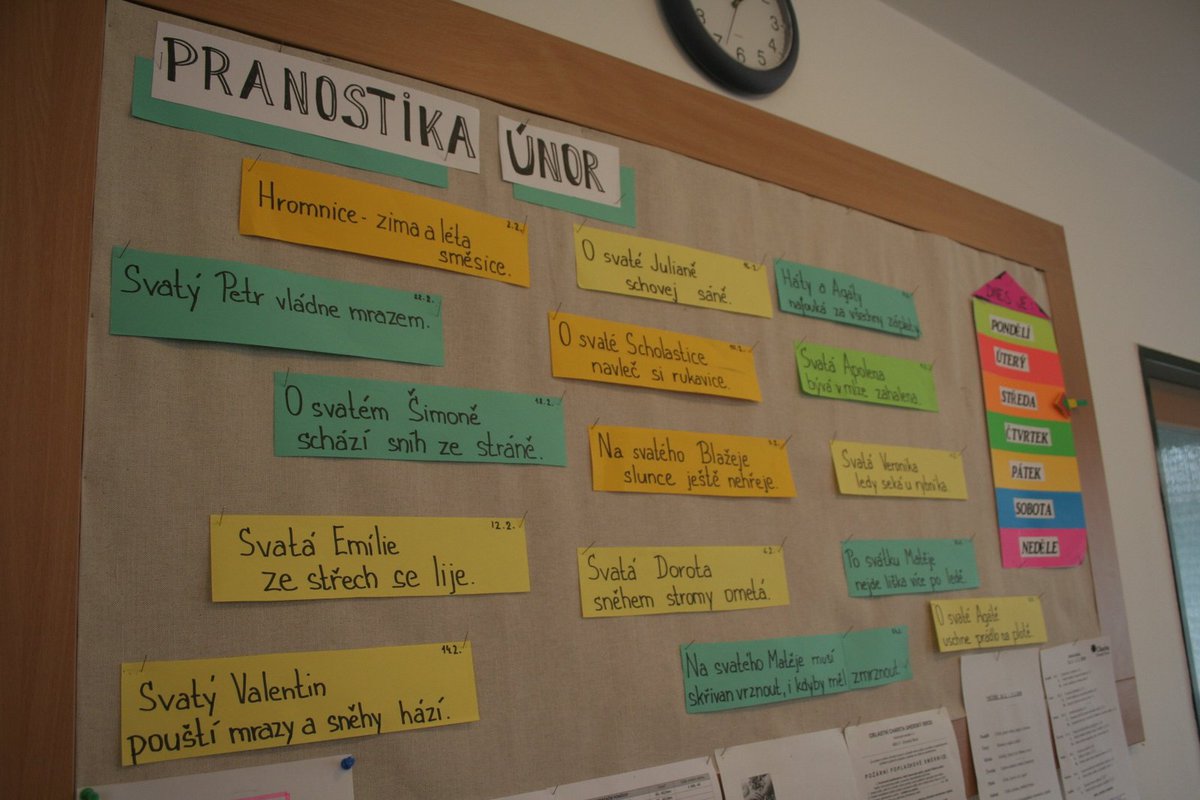 PRANOSTIKA ÚNOR
Hromnice - zima a léta 2.2.
směsice.
Svatý Petr vládne mrazem. 22.2.
O svatém Šimoně 18.2.
schází sníh ze stráně.
Svatá Emílie 12.2.
ze střech se lije.
Svatý Valentin 14.2.
pouští mrazy a sněhy hází.
O svaté Julianě
schovej sáně.
O svaté Scholastice
navleč si rukavice.
Na svatého Blažeje
slunce ještě nehřeje.
Svatá Dorota
sněhem stromy ometá.
Na svatého Matěje musí
skřivan vrznout, i kdyby měl zmrznout
Háty a Agáty
nafouká za všechny záplaty
Svatá Apolena
bývá v mlze zahalena.
Svatá Veronika
ledy seká u rybníka.
Po svátku Matěje
nejde liška více po ledě.
O svaté Agátě
uschne prádlo na plotě.
DNES JE:
PONDĚLÍ
ÚTERÝ
STŘEDA
ČTVRTEK
PÁTEK
SOBOTA
NEDĚLE
OBLASTNÍ CHARITA UHERSKÝ BROD,
POŽÁRNÍ POPLACHOVÉ SMĚRNICE
3
4
5
6
7